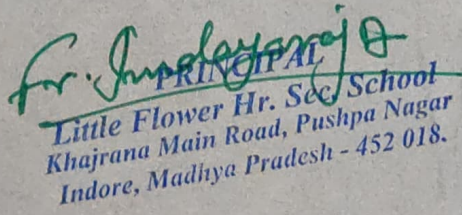 Fr.
PRINCIPAL
Little Flower Hr. Sec. School
Khajrana Main Road, Pushpa Nagar
Indore, Madhya Pradesh - 452 018.